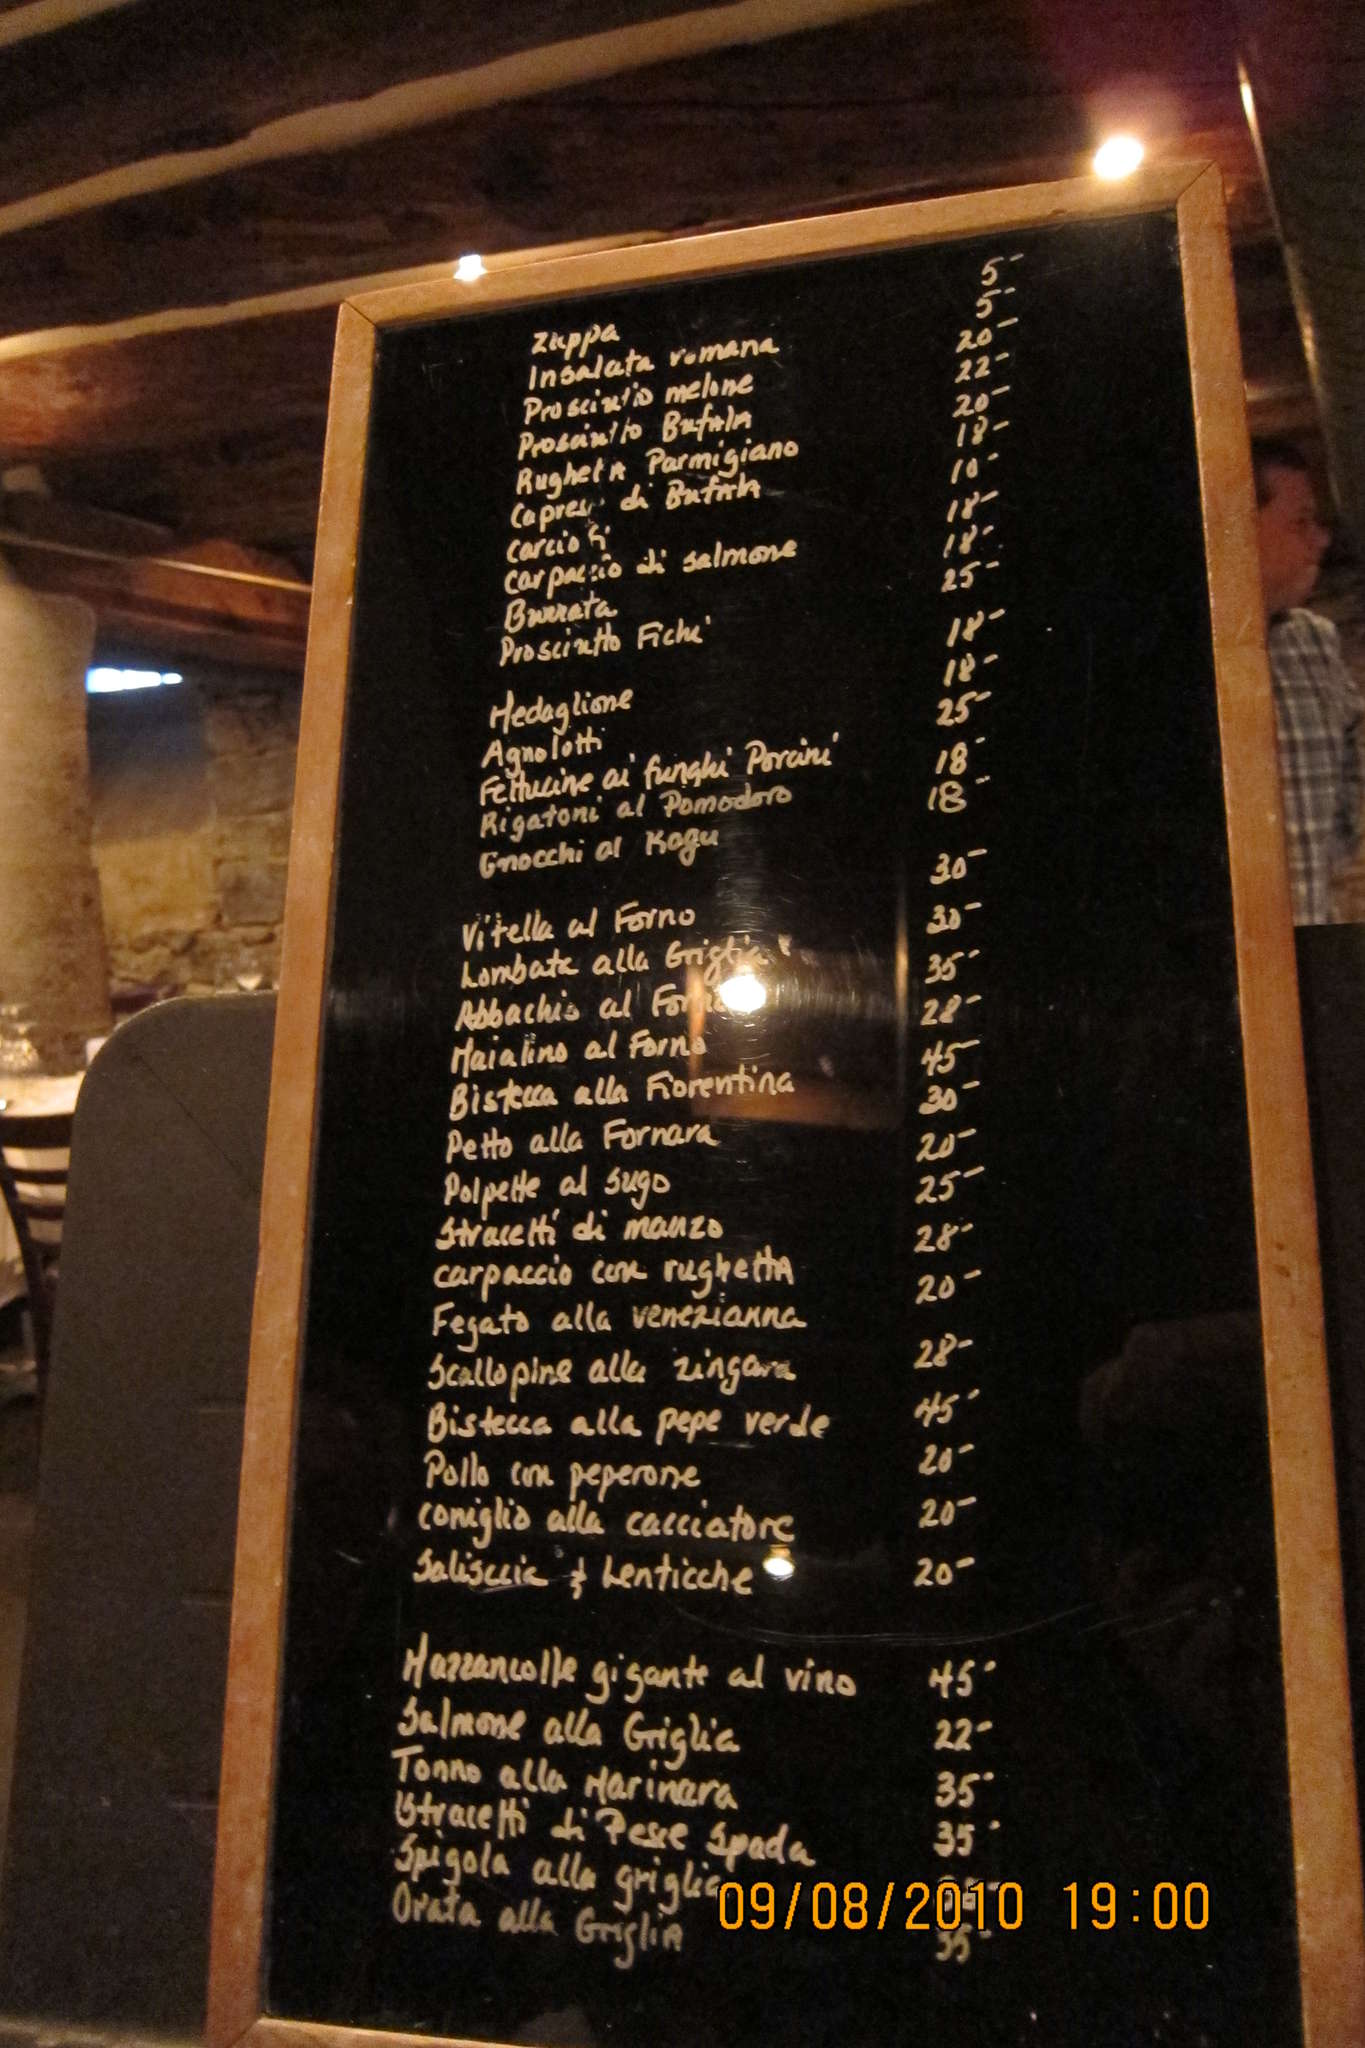 Zuppa 5-
Insalata romana 5-
Prosciutto melone 20-
Prosciutto Bufala 22-
RughetA Parmigiano 20-
Capresi di Bufala 18-
Carciofi 10-
Carpaccio di salmone 18-
Burrata 18-
Prosciutto Fichi 25-
Medaglione 18-
Agnolotti 18-
Fettucine ai funghi Porcini 25-
Rigatoni al Pomodoro 18-
Gnocchi al Ragu 18-
Vitella al Forno 30-
Lombata alla Griglia 30-
Abbachio al Forno 35-
Maialino al Forno 28-
Bistecca alla Fiorentina 45-
Petto alla Fornara 30-
Polpette al sugo 20-
Stracetti di manzo 25-
carpaccio con rughettA 28-
Fegato alla venezianna 20-
Scallopine alla zingara 28-
Bistecca alla pepe verde 45-
Pollo con peperone 20-
coniglio alla cacciatore 20-
Salisccia & Lenticche 20-
Mazzancolle gigante al vino 45-
Salmone alla Griglia 22-
Tonno alla Marinara 35-
Stracetti di Pesce Spada 35-
Spigola alla griglia
Orata alla Griglia 35-
09/08/2010 19:00